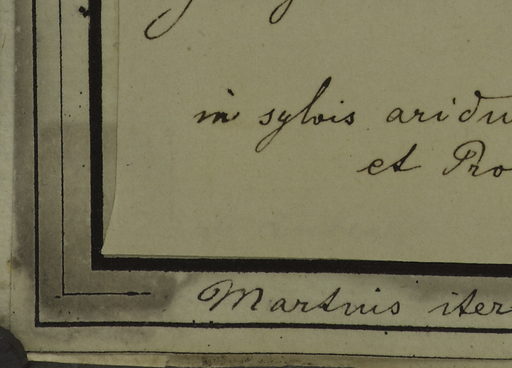 in sylvis aridu
et Pro
Martius iter